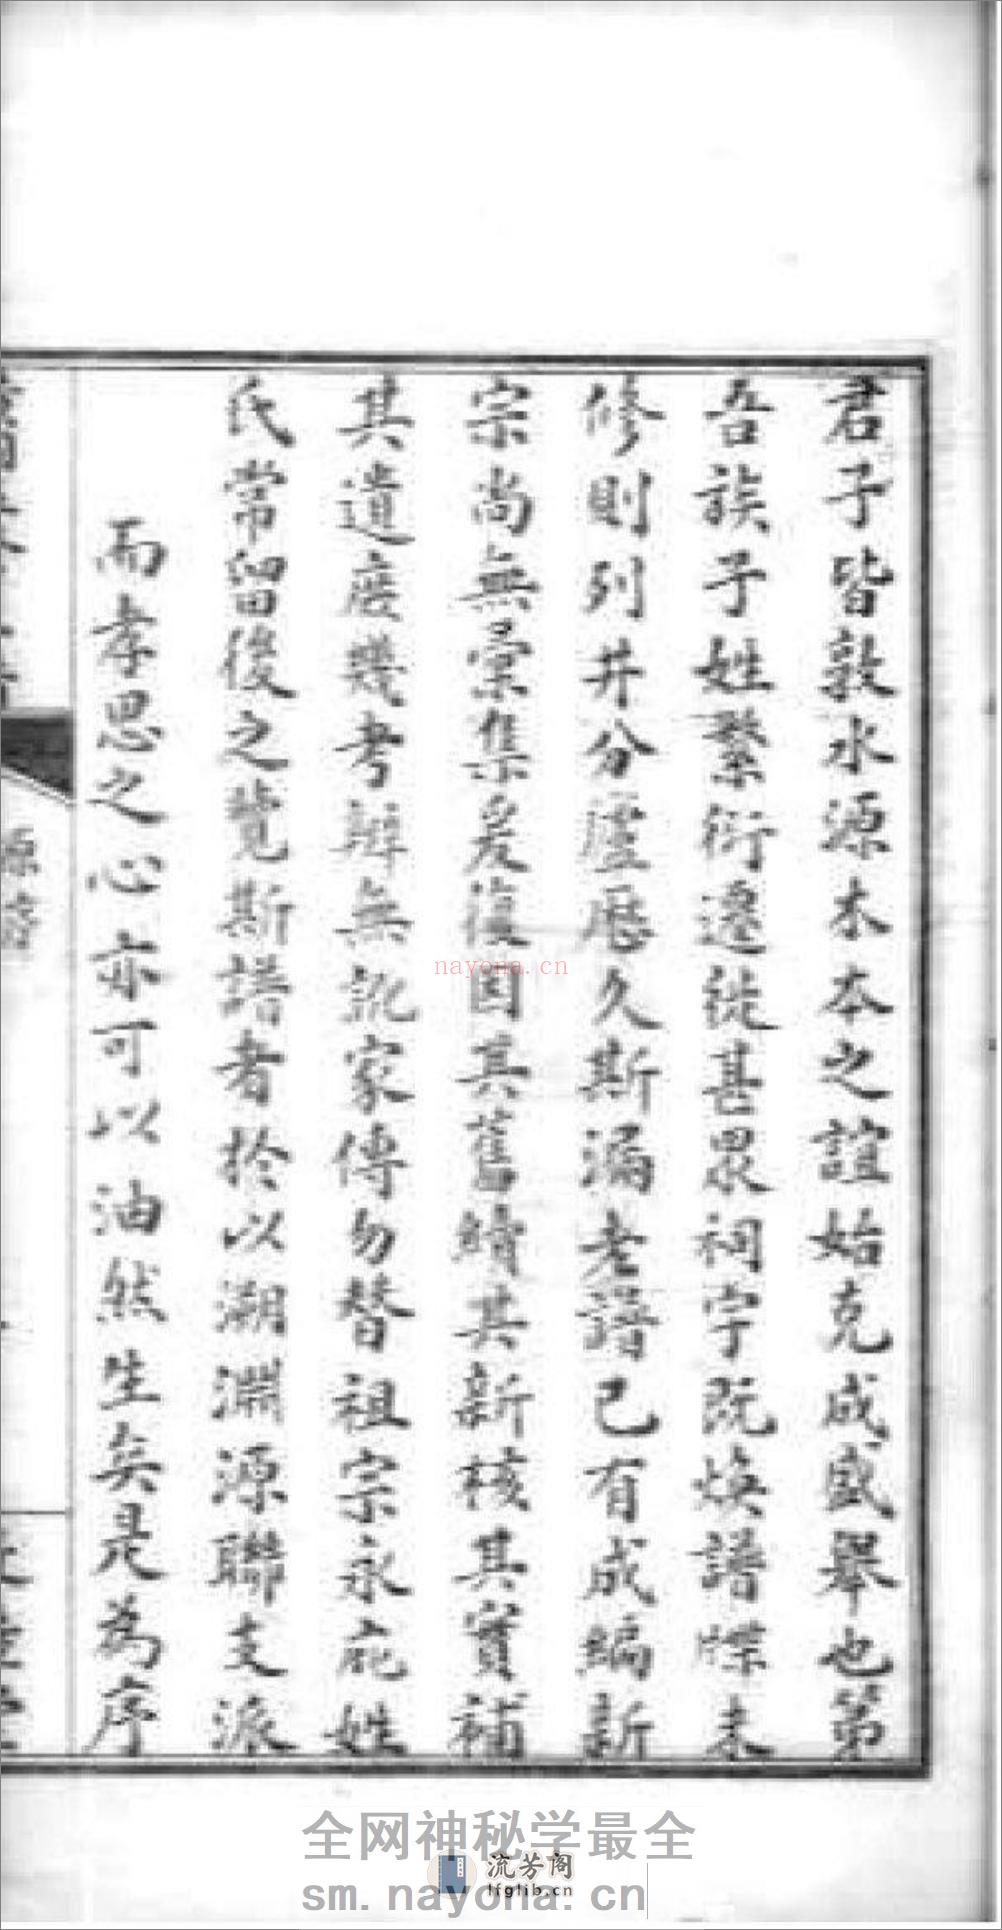 君子皆敦水源木本之誼始克成盛舉也第
吾族子姓繫衍遷徙甚眾祠宇既煥譜牒未
修則列井分廬歷久斯漏老譜已有成編新
宗尚無彙集爰復因其舊續其新核其實補
其遺庶幾考辨無訛家傳勿替祖宗永庇姓
氏常留後之覽斯譜者於以溯淵源聯支派
而孝思之心亦可以油然生矣是為序
源
nayona.cn
全网神秘学最全
流芳阁
lfglib.cn
sm.nayona.cn